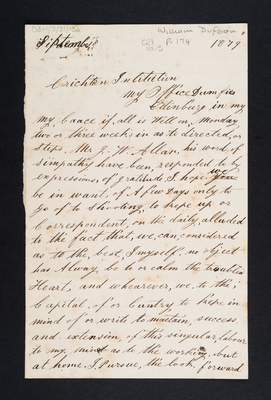 William Dufbon
P. 174
1879
Crichton Intitution
My Office Dumfies
Edenburg in my
my Caace if, all is Well on, Monday
two or three weeks in as to directed, or
steps. Mr J. W. Allan, his word of
simpathy have been, responded to by
expressions, of gratitude, I hope. you
be in want, of A few Days only to
go of to Shooting, to hope up or
Correspondent, on the daily, alluded
to the fact that, we, can, considered
as to the, best, I, myself, no object
has Alway, be to or calm the troublis
Heart, and whearever, we, to the
Capital, of or Cuntry, to hope in
mind of or write to maetain, success
and extension, of this singular labour
to my mind as to the working, but
at home I, Pursue, the look, forward